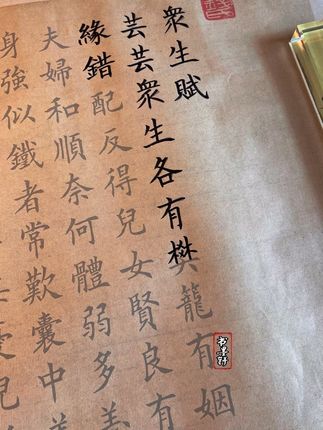 衆生賦
芸芸衆生各有樊籠有姻
緣錯配反得兒女賢良有
夫婦和順奈何體弱多
身強似鐵者常歎囊中